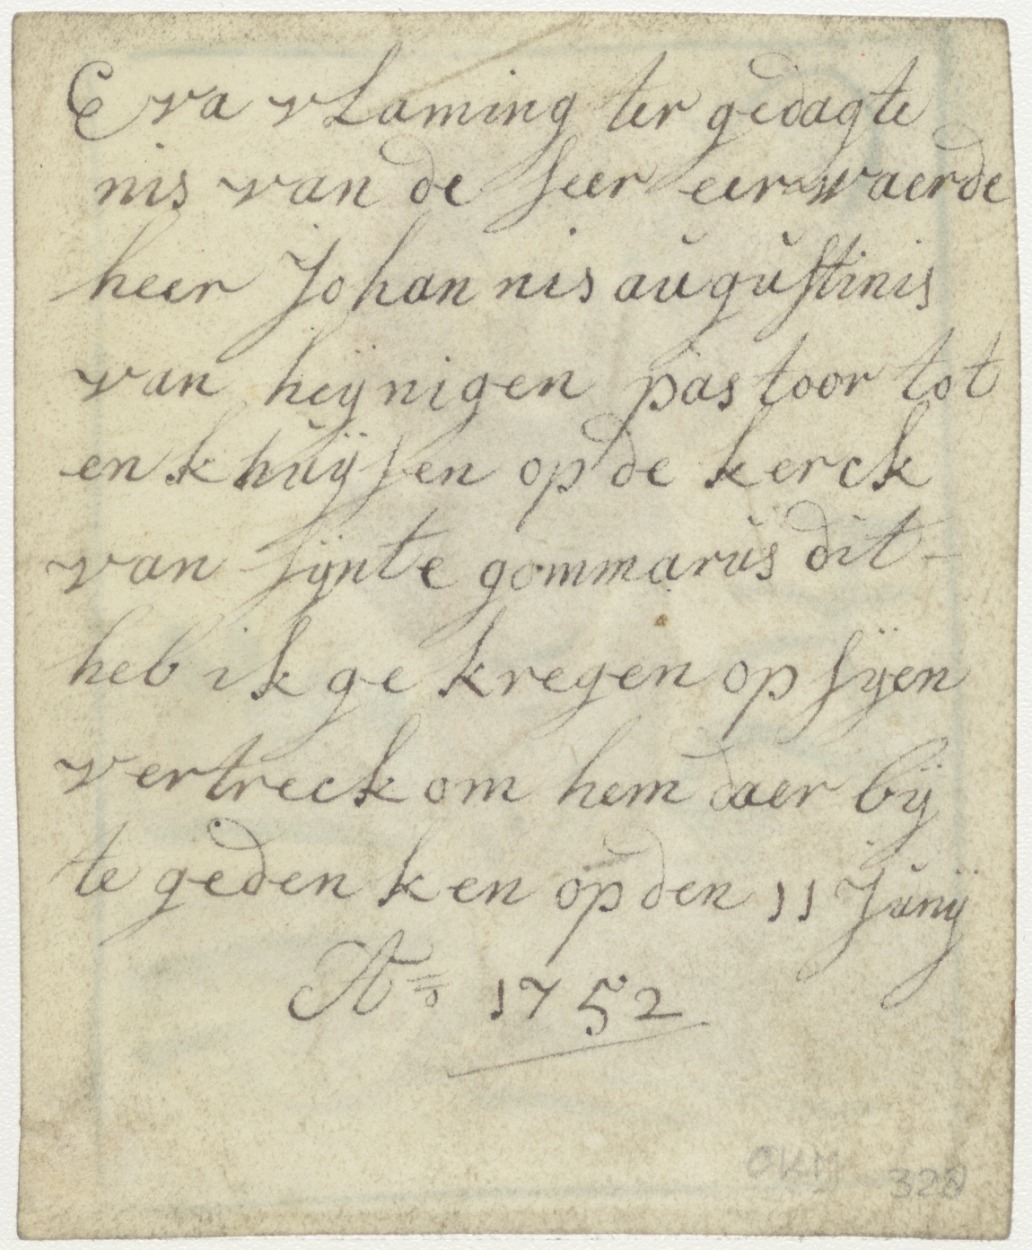 Eva vlaming ter gedagte
nis van de seer eerwaerde
heer Johannis augustinis
van heijnigen pastoor tot
enkhuijsen op de kerck
van sijnte gommarus dit-
heb ik ge kregen op sijen
vertreck om hem daer bij
te gedenken op den 11 Junij
Ao 1752
OKM 328